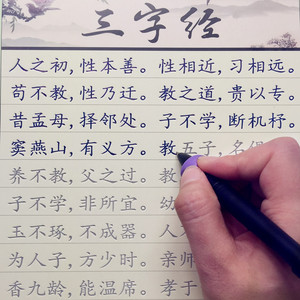 三字经
人之初，性本善。性相近，习相远。
苟不教，性乃迁。教之道，贵以专。
昔孟母，择邻处。子不学，断机杼。
窦燕山，有义方。教五子，名俱
养不教，父之过。教
子不学，非所宜。幼
玉不琢，不成器。人
为人子，方少时。亲师
香九龄，能温席。孝于